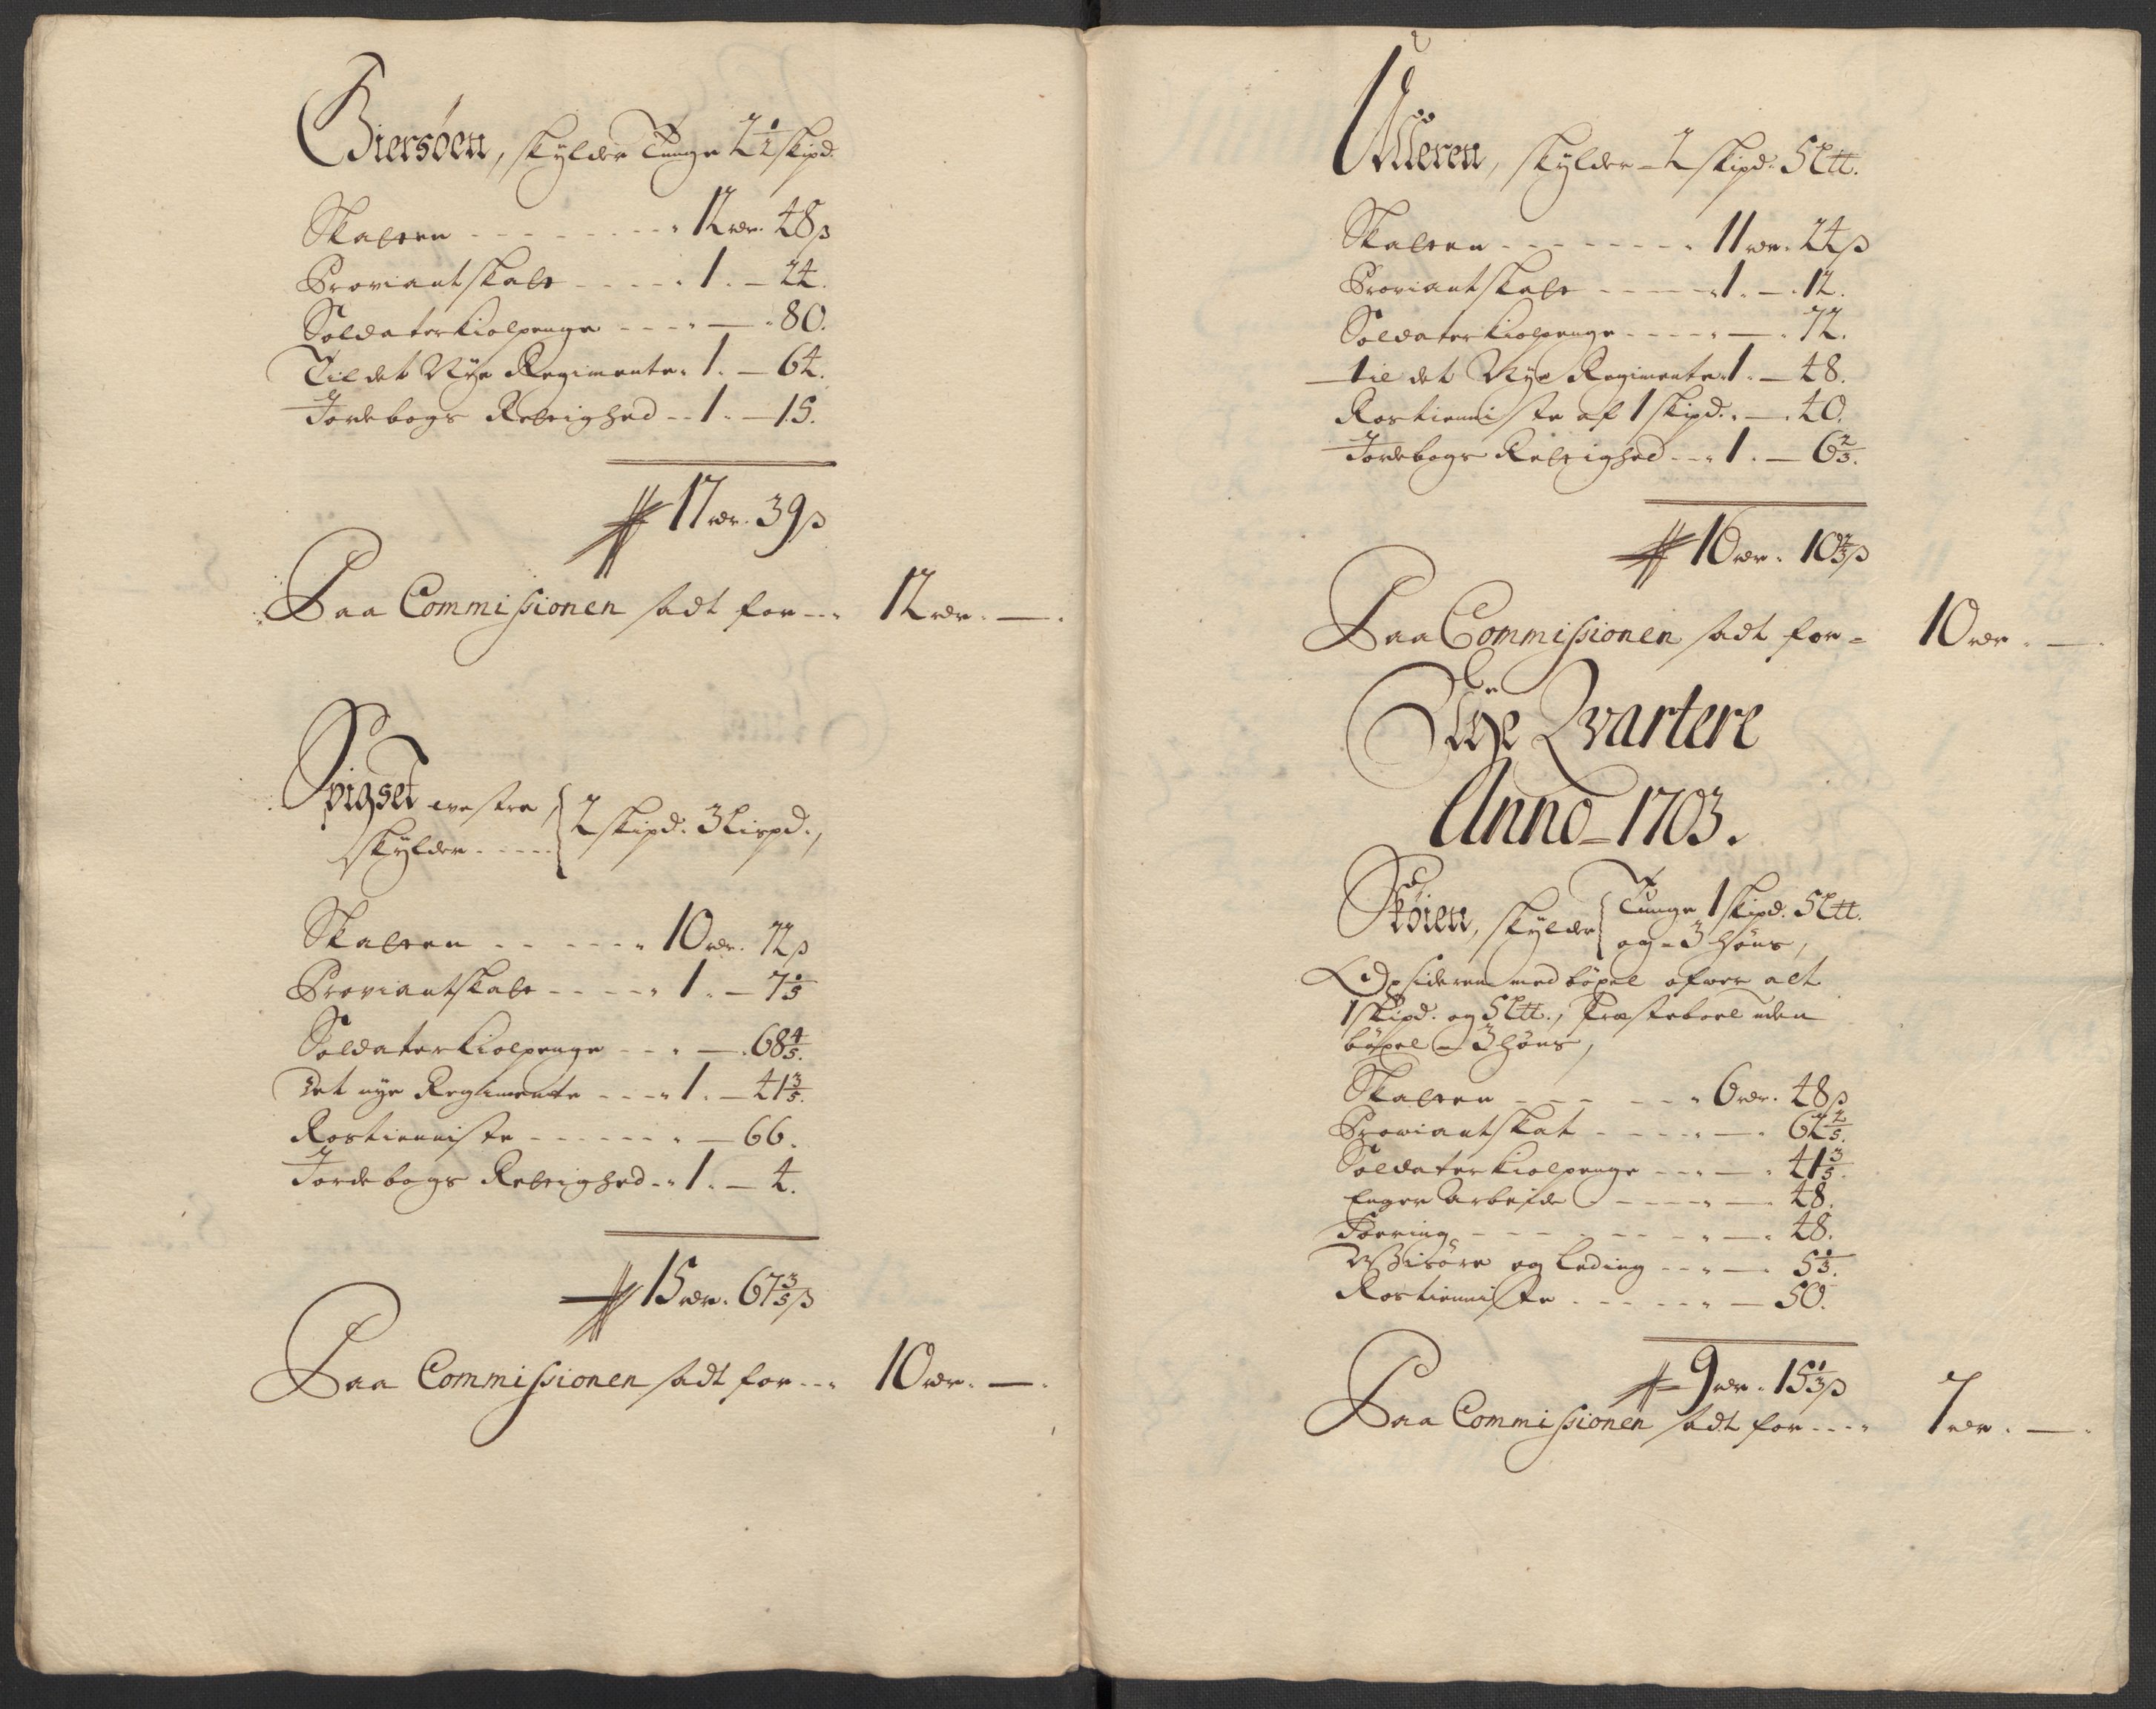 Giersøen, skylder Tunge 2½ skipd.
Skatten - - - - - - - - 12 rdr. 48 ß
Proviantskatt - - - - - 1. — 24.
Soldaterkiolpenge - - - - — - 80.
Til det Nye Regimente. 1. — 64.
Jordebogs Rettighed - - 1. — 15.
17 rdr. 39 ß
Paa Commissionen sadt for - - - 12 rdr. — .
Spigset westre,
skylder - - - - -
2 skipd. 3 Lispd.,
Skatten - - - - - - 10 rdr. 72 ß
Proviantskatt - - - - - 1. — 7 1/5
Soldaterkiolpenge - - - . — . 68 4/5.
Det nye Regimente - - - - 1. — 41 3/5.
Rostienniste - - - - - - . — 66.
Jordebogs Rettighed - - 1. — 4.
15 rdr. 67 3/5 ß
Paa Commissionen sadt for - - - 10 rdr. — .
Meren, skylder - 2 skipd. 5 Ltt.
Skatten - - - - - - - - 11 rdr. 24 ß
Proviantskatt - - - - - 1. — . 12.
Soldaterkiolpenge - - - - . — . 72.
til det Nye Regimente. 1. — 48.
Rostienniste af 1 skipd. . — . 40.
Jordebogs Rettighed - - - 1. — 6 2/3.
16 rdr. 10 2/3 ß
Paa Commissionen sadt for - 10 rdr. — .
Qvartere
Anno - 1703.
Skøien, skylder
Tunge 1 skipd. 5 Ltt.
og - 3 høns,
Opsideren med böxel ofwer alt
1 skipd. og 5 Ltt., Præstebole uden
böxel - 3 høns,
Skatten - - - - - - 6 rdr. 48 ß
Proviantskat - - - - . — . 62 2/5.
Soldaterkiolpenge - - - . — . 41 3/5.
Enger arbeide - - - - . — 48.
Foering - - - - - - - . — . 48.
Wisøre og Leding - - . — . 5 1/3.
Rostienniste - - - - - . — 50.
9 rdr. 15 1/3 ß
Paa Commissionen sadt for - - - - 7 rdr. — .